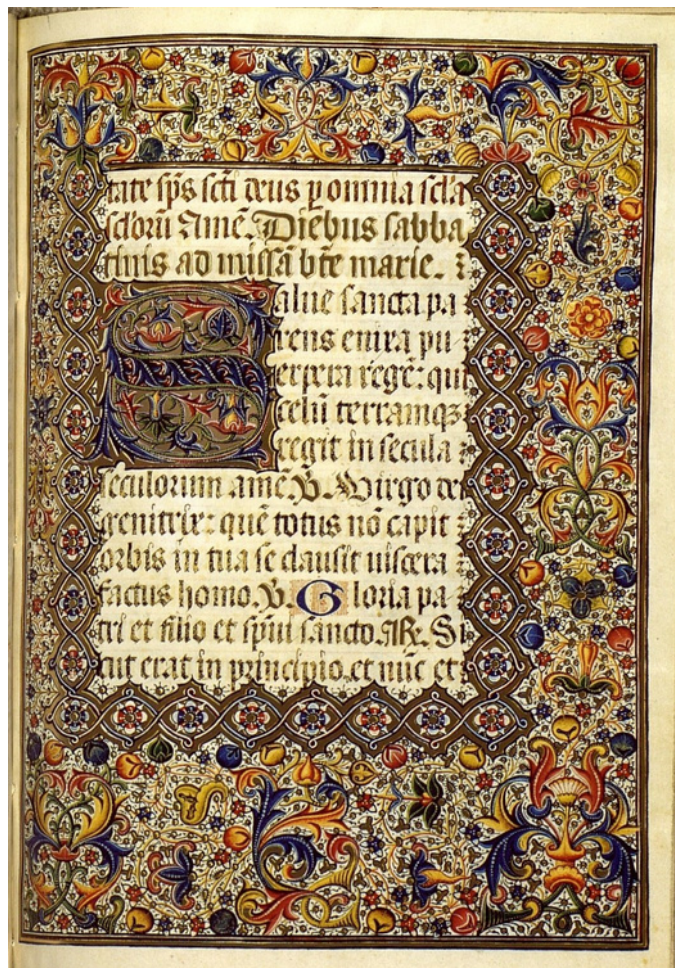 tate sp̄s scti deus p omnia scła
scłorū Amē. Diebus sabba
thinis ad missā btē marie.
Salue sancta pa
rens enixa pu
erpera regē: qui
celū terramqꝫ
regit in secula
seculorum amē. ℣. Virgo dei
genitrix: quē totus nō capit
orbis in tua se clausit uiscera
factus homo. ℣. Gloria pa
tri et filio et sp̄ui sancto. ℟. Si
cut erat in principio. et nūc et